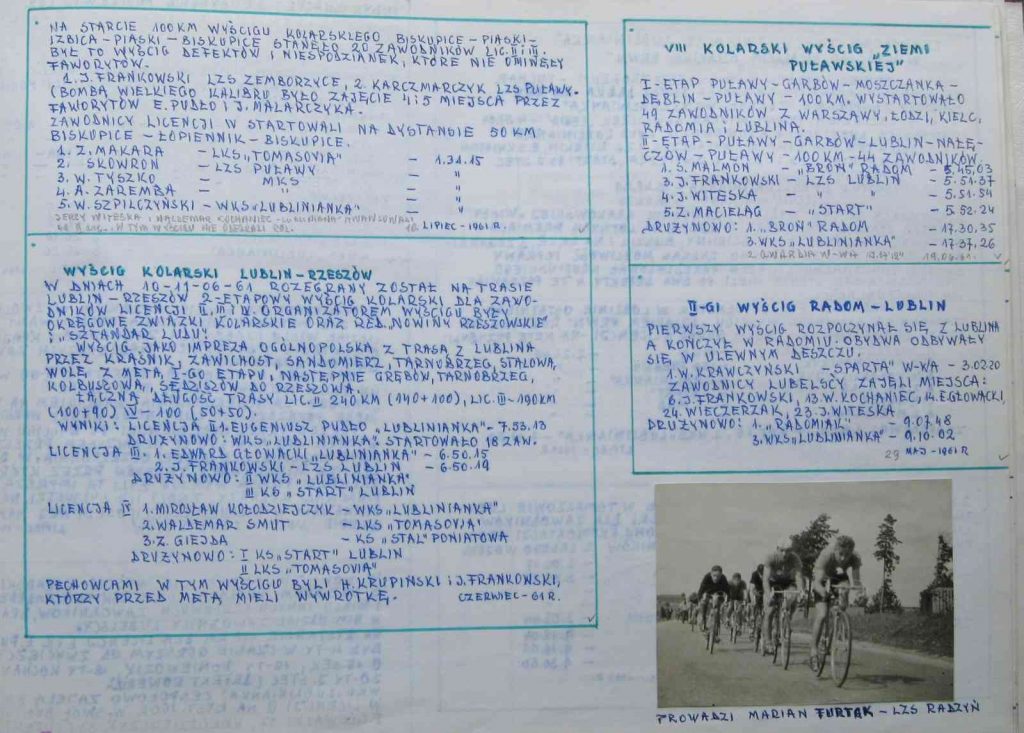 NA STARCIE 100 KM WYŚCIGU KOLARSKIEGO BISKUPICE-PIASKI-
IZBICA-PIASKI-BISKUPICE STANĘŁO 20 ZAWODNIKÓW LIC. II i III.
BYŁ TO WYŚCIG DEFEKTÓW I NIESPODZIANEK, KTÓRE NIE OMINĘŁY
FAWORYTÓW.
1. J. FRANKOWSKI LZS ZEMBORZYCE, 2. KARCZMARCZYK LZS PUŁAWY.
(BOMBĄ WIELKIEGO KALIBRU BYŁO ZAJĘCIE 4 i 5 MIEJSCA PRZEZ
FAWORYTÓW E. PUDŁO i J. MALARCZYKA.
ZAWODNICY LICENCJI IV STARTOWALI NA DYSTANSIE 50 KM
BISKUPICE-ŁOPIENNIK-BISKUPICE.
1. Z. MAKARA - LKS "TOMASOVIA" - 1.31.15
2. SKOWRON - LZS PUŁAWY - "
3. W. TYSZKO - MKS - "
4. A. ZAREMBA - " - "
5. W. SZPILCZYŃSKI - WKS "LUBLINIANKA" - "
JERZY WITESKA i WALDEMAR KOCHANIEC - LUBLINIANKA AWANSOWALI
W TYM WYŚCIGU NIE ODEGRALI ROL.
16 LIPIEC - 1961 R.
WYŚCIG KOLARSKI LUBLIN-RZESZÓW
W DNIACH 10-11-06-61 ROZEGRANY ZOSTAŁ NA TRASIE
LUBLIN-RZESZÓW 2-ETAPOWY WYŚCIG KOLARSKI DLA ZAWO-
DNIKÓW LICENCJI II, III i IV. ORGANIZATOREM WYŚCIGU BYŁY
OKRĘGOWE ZWIĄZKI KOLARSKIE ORAZ RED. "NOWINY RZESZOWSKIE"
i "SZTANDAR LUDU".
WYŚCIG JAKO IMPREZA OGÓLNOPOLSKA Z TRASĄ Z LUBLINA
PRZEZ KRAŚNIK, ZAWICHOST, SANDOMIERZ, TARNOBRZEG, STALOWĄ,
WOLĘ, Z METĄ I-GO ETAPU, NASTĘPNIE GRĘBÓW, TARNOBRZEG,
KOLBUSZOWĄ, SĘDZISZÓW DO RZESZOWA.
ŁĄCZNA DŁUGOŚĆ TRASY LIC. II 240 KM (140+100), LIC. III - 190KM
(100+90) IV - 100 (50+50).
WYNIKI: LICENCJA II 1. EUGENIUSZ PUDŁO "LUBLINIANKA" - 7.53.13
DRUŻYNOWO: WKS "LUBLINIANKA". STARTOWAŁO 18 ZAW.
LICENCJA III. 1. EDWARD GŁOWACKI "LUBLINIANKA" - 6.50.15
2. J. FRANKOWSKI - LZS LUBLIN - 6.50.19
DRUŻYNOWO: II WKS "LUBLINIANKA"
III KS "START" LUBLIN
LICENCJA IV 1. MIROSŁAW KOŁODZIEJCZYK - WKS "LUBLINIANKA"
2. WALDEMAR SMUT - LKS "TOMASOVIA"
3. Z. GIEJDA - KS "STAL" PONIATOWA
DRUŻYNOWO: I KS "START" LUBLIN
II LKS "TOMASOVIA"
PECHOWCAMI W TYM WYŚCIGU BYLI H. KRUPIŃSKI i J. FRANKOWSKI,
KTÓRZY PRZED METĄ MIELI WYWROTKĘ. CZERWIEC - 61 R.
VIII KOLARSKI WYŚCIG "ZIEMI
PUŁAWSKIEJ"
I-ETAP PUŁAWY-GARBÓW-MOSZCZANKA-
DĘBLIN-PUŁAWY-100KM. WYSTARTOWAŁO
49 ZAWODNIKÓW Z WARSZAWY, ŁODZI, KIELC,
RADOMIA i LUBLINA.
II-ETAP-PUŁAWY-GARBÓW-LUBLIN-NAŁĘ-
CZÓW-PUŁAWY-100KM-44 ZAWODNIKÓW.
1. S. MALMON - "BROŃ" RADOM - 5.45.03
3. J. FRANKOWSKI - LZS LUBLIN - 5.51.37
4. J. WITESKA - " - 5.51.54
5. Z. MACIELĄG - "START" - 5.52.24
DRUŻYNOWO: 1. "BROŃ" RADOM - 17.30.35
3. WKS "LUBLINIANKA" - 17.37.26
2. GWARDIA W-WA 19.06.61.
II-GI WYŚCIG RADOM-LUBLIN
PIERWSZY WYŚCIG ROZPOCZYNAŁ SIĘ Z LUBLINA
A KOŃCZYŁ W RADOMIU. OBYDWA ODBYWAŁY
SIĘ W ULEWNYM DESZCZU.
1. W. KRAWCZYŃSKI - "SPARTA" W-WA - 3.02.20
ZAWODNICY LUBELSCY ZAJĘLI MIEJSCA:
6. J. FRANKOWSKI, 13. W. KOCHANIEC, 14. E. GŁOWACKI,
24. WIECZERZAK, 23. J. WITESKA
DRUŻYNOWO: 1. "RADOMIAK" - 9.07.48
3. WKS "LUBLINIANKA" - 9.10.02
29 MAJ - 1961 R
PROWADZI MARIAN FURTAK - LZS RADZYŃ